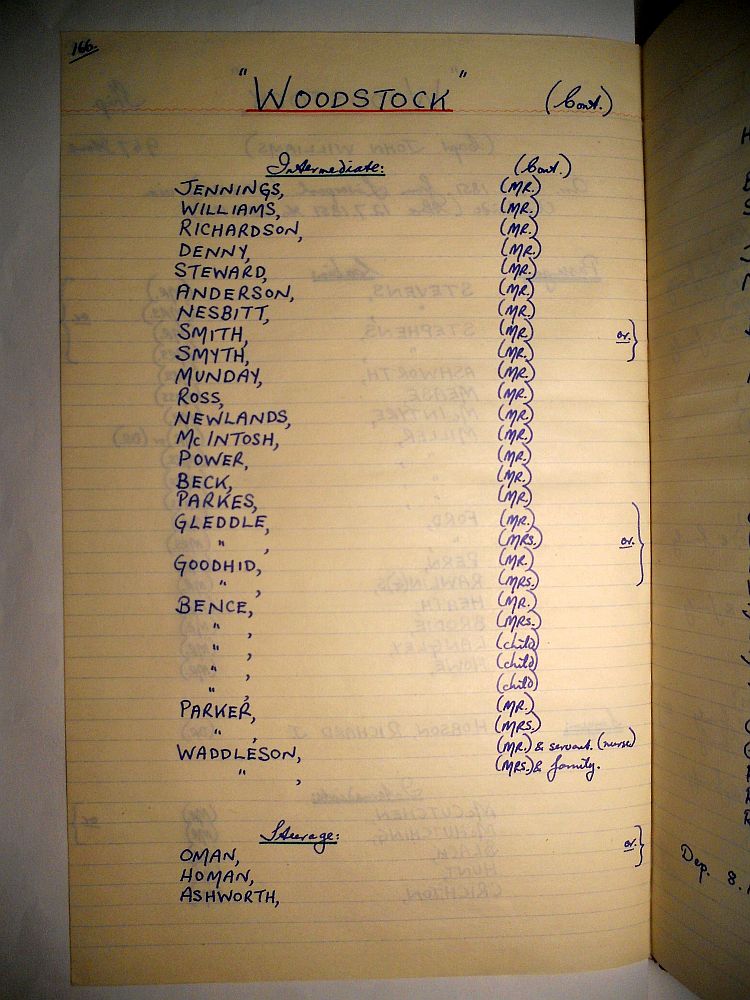 166.
"WOODSTOCK" (Cont.)
Intermediate: (Cont.)
JENNINGS, (MR.)
WILLIAMS, (MR.)
RICHARDSON, (MR.)
DENNY, (MR.)
STEWARD, (MR.)
ANDERSON, (MR.)
NESBITT, (MR.)
SMITH, (MR.) or.
SMYTH, (MR.)
MUNDAY, (MR.)
ROSS, (MR.)
NEWLANDS, (MR.)
McINTOSH, (MR.)
POWER, (MR.)
BECK, (MR.)
PARKES, (MR.)
GLEDDLE, (MR.)
" , (MRS.) or.
GOODHID, (MR.)
" , (MRS.)
BENCE, (MR.)
" , (MRS.)
" , (child)
" , (child)
" , (child)
PARKER, (MR.)
" , (MRS.)
WADDLESON, (MR.) & servant. (nurse)
" , (MRS.) & family.
Steerage:
OMAN, or.
HOMAN,
ASHWORTH,
Dep. 8.